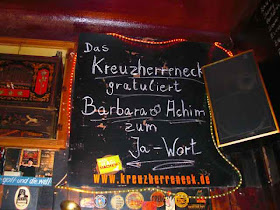 Das
Kreuzherreneck
gratuliert
Barbara & Achim
zum
Ja-Wort
www.kreuzherreneck.de
gott und die welt